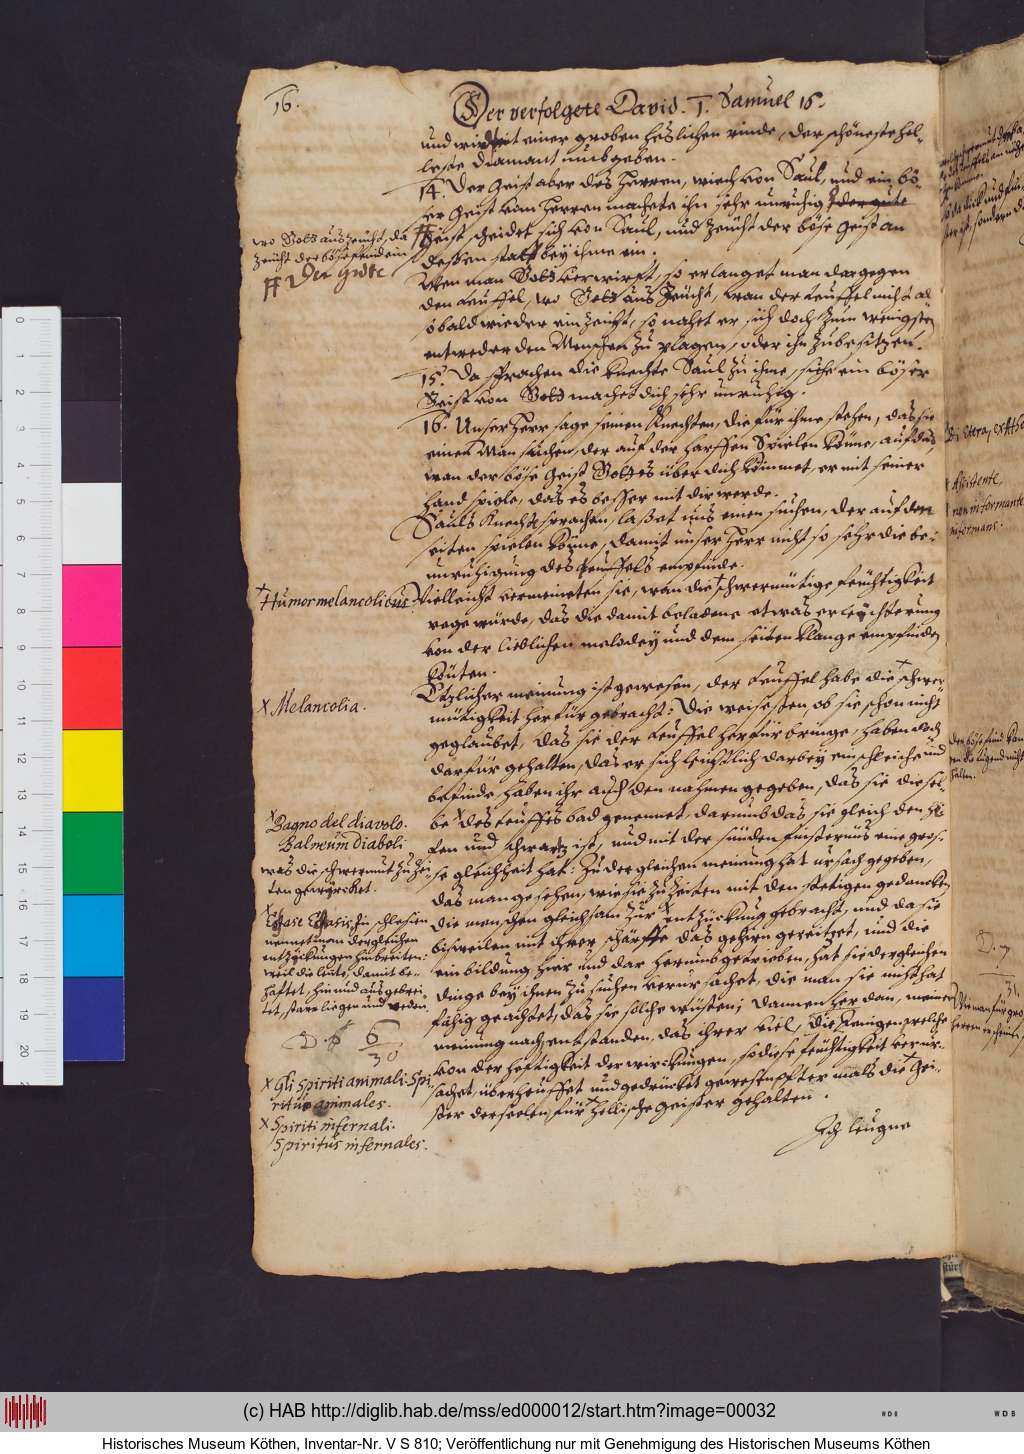 16.
Der verfolgete David. I. Samuel 16.
und wird mit einer groben heslichen rinde, der schöneste hel-
leste diamant umbgeben.
14. Der Geist aber des Herren, wiech von Saul, und ein bö-
ser Geist vom Herren machete ihn sehr unruhig der gute
Geist scheidet sich von Saul, und zeücht der böse Geist an
dessen statt bey ihme ein.
Wen man Gott verwirft, so erlanget man dargegen
den teuffel, wo Gott aus zeücht, wan der teuffel nicht al
sobald wieder einzeücht, so nahet er sich doch zum wenigsten
entweder den Menschen zu plagen, oder ihn zubesitzen.
15. Da sprachen die knechte Saul zu ihme, siehe ein böser
Geist von Gott machet dich sehr unruhig.
16. Unser Herr sage seinen Knechten, die für ihme stehen, das sie
einen Man suchen, der auf der harffen Spielen könne, auf das,
wan der böse Geist Gottes über dich kömmet, er mit seiner
hand spiele, das es besser mit dir werde.
Sauls Knechte sprachen, lasset uns einen suchen, der auf den
seiten spielen könne, damit unser Herr nicht so sehr die be-
unruhigung des teuffels empfinde.
Vielleicht vermeineten sie, wan die schwermütige feuchtigkeit
rege würde, das die damit beladene etwas erleychterung
von der lieblichen melodey und dem seiten klange empfinden
könten.
Etzlicher meinung ist gewesen, der teuffel habe die schwer-
mütigkeit herfür gebracht: Die weisesten, ob sie schon nicht
geglaubet, das sie der teuffel herfür bringe, haben doch
darfür gehalten, das er sich leuchtlich darbey einschleiche und
befinde, haben ihr auch den nahmen gegeben, das sie diesel-
be des teuffels bad genennet, darumb das sie gleich den
und schwartz ist, und mit der sünden finsternüs eine gros-
se gleichheit hat: Zu dergleichen meinung hat ursach gegeben,
das man gesehen, wie sie zu zeiten mit den stetigen gedancken
die menschen gleichsam zur entzückung gebracht, und da sie
bisweilen mit ihrer schärffe das gehirn gereitzet, und die
einbildung hier und dar herumb getrieben, hat sie dergleichen
dinge bey ihnen zu suchen verursachet, die man sie nicht hat
fähig geachtet, das sie solche wüsten; Dannen her dan, meiner
meinung nach, entstanden, das ihrer viel, die Jenigen welche
von der heftigkeit der wirckungen, so diese feuchtigkeit verur-
sachet, überheuffet und gedrücket gewesen, öfter mals die Gei-
ster der seelen, für hellische geister gehalten.
Ich leugne
wo Gott auszeucht, da
zeucht der böse feind ein
Der Gute
Humor melancolicus
Melancolia.
Bagno del diavolo.
Balneum diaboli
was die schwermut zu zei
ten gewircket.
in schlesien
nennet man dergleichen
entzückungen hinbreiten:
weil die leute, damit be-
haftet, hin und ausgebrei-
tet, starr liegen und reden.
6
30
Gli spiriti animali. Spi
ritus animales.
Spiriti infernali.
Spiritus infernales.
Assistente,
non informante
informans.
0 1 2 3 4 5 6 7 8 9 10 11 12 13 14 15 16 17 18 19 20
(c) HAB http://diglib.hab.de/mss/ed000012/start.htm?image=00032
Historisches Museum Köthen, Inventar-Nr. V S 810; Veröffentlichung nur mit Genehmigung des Historischen Museums Köthen